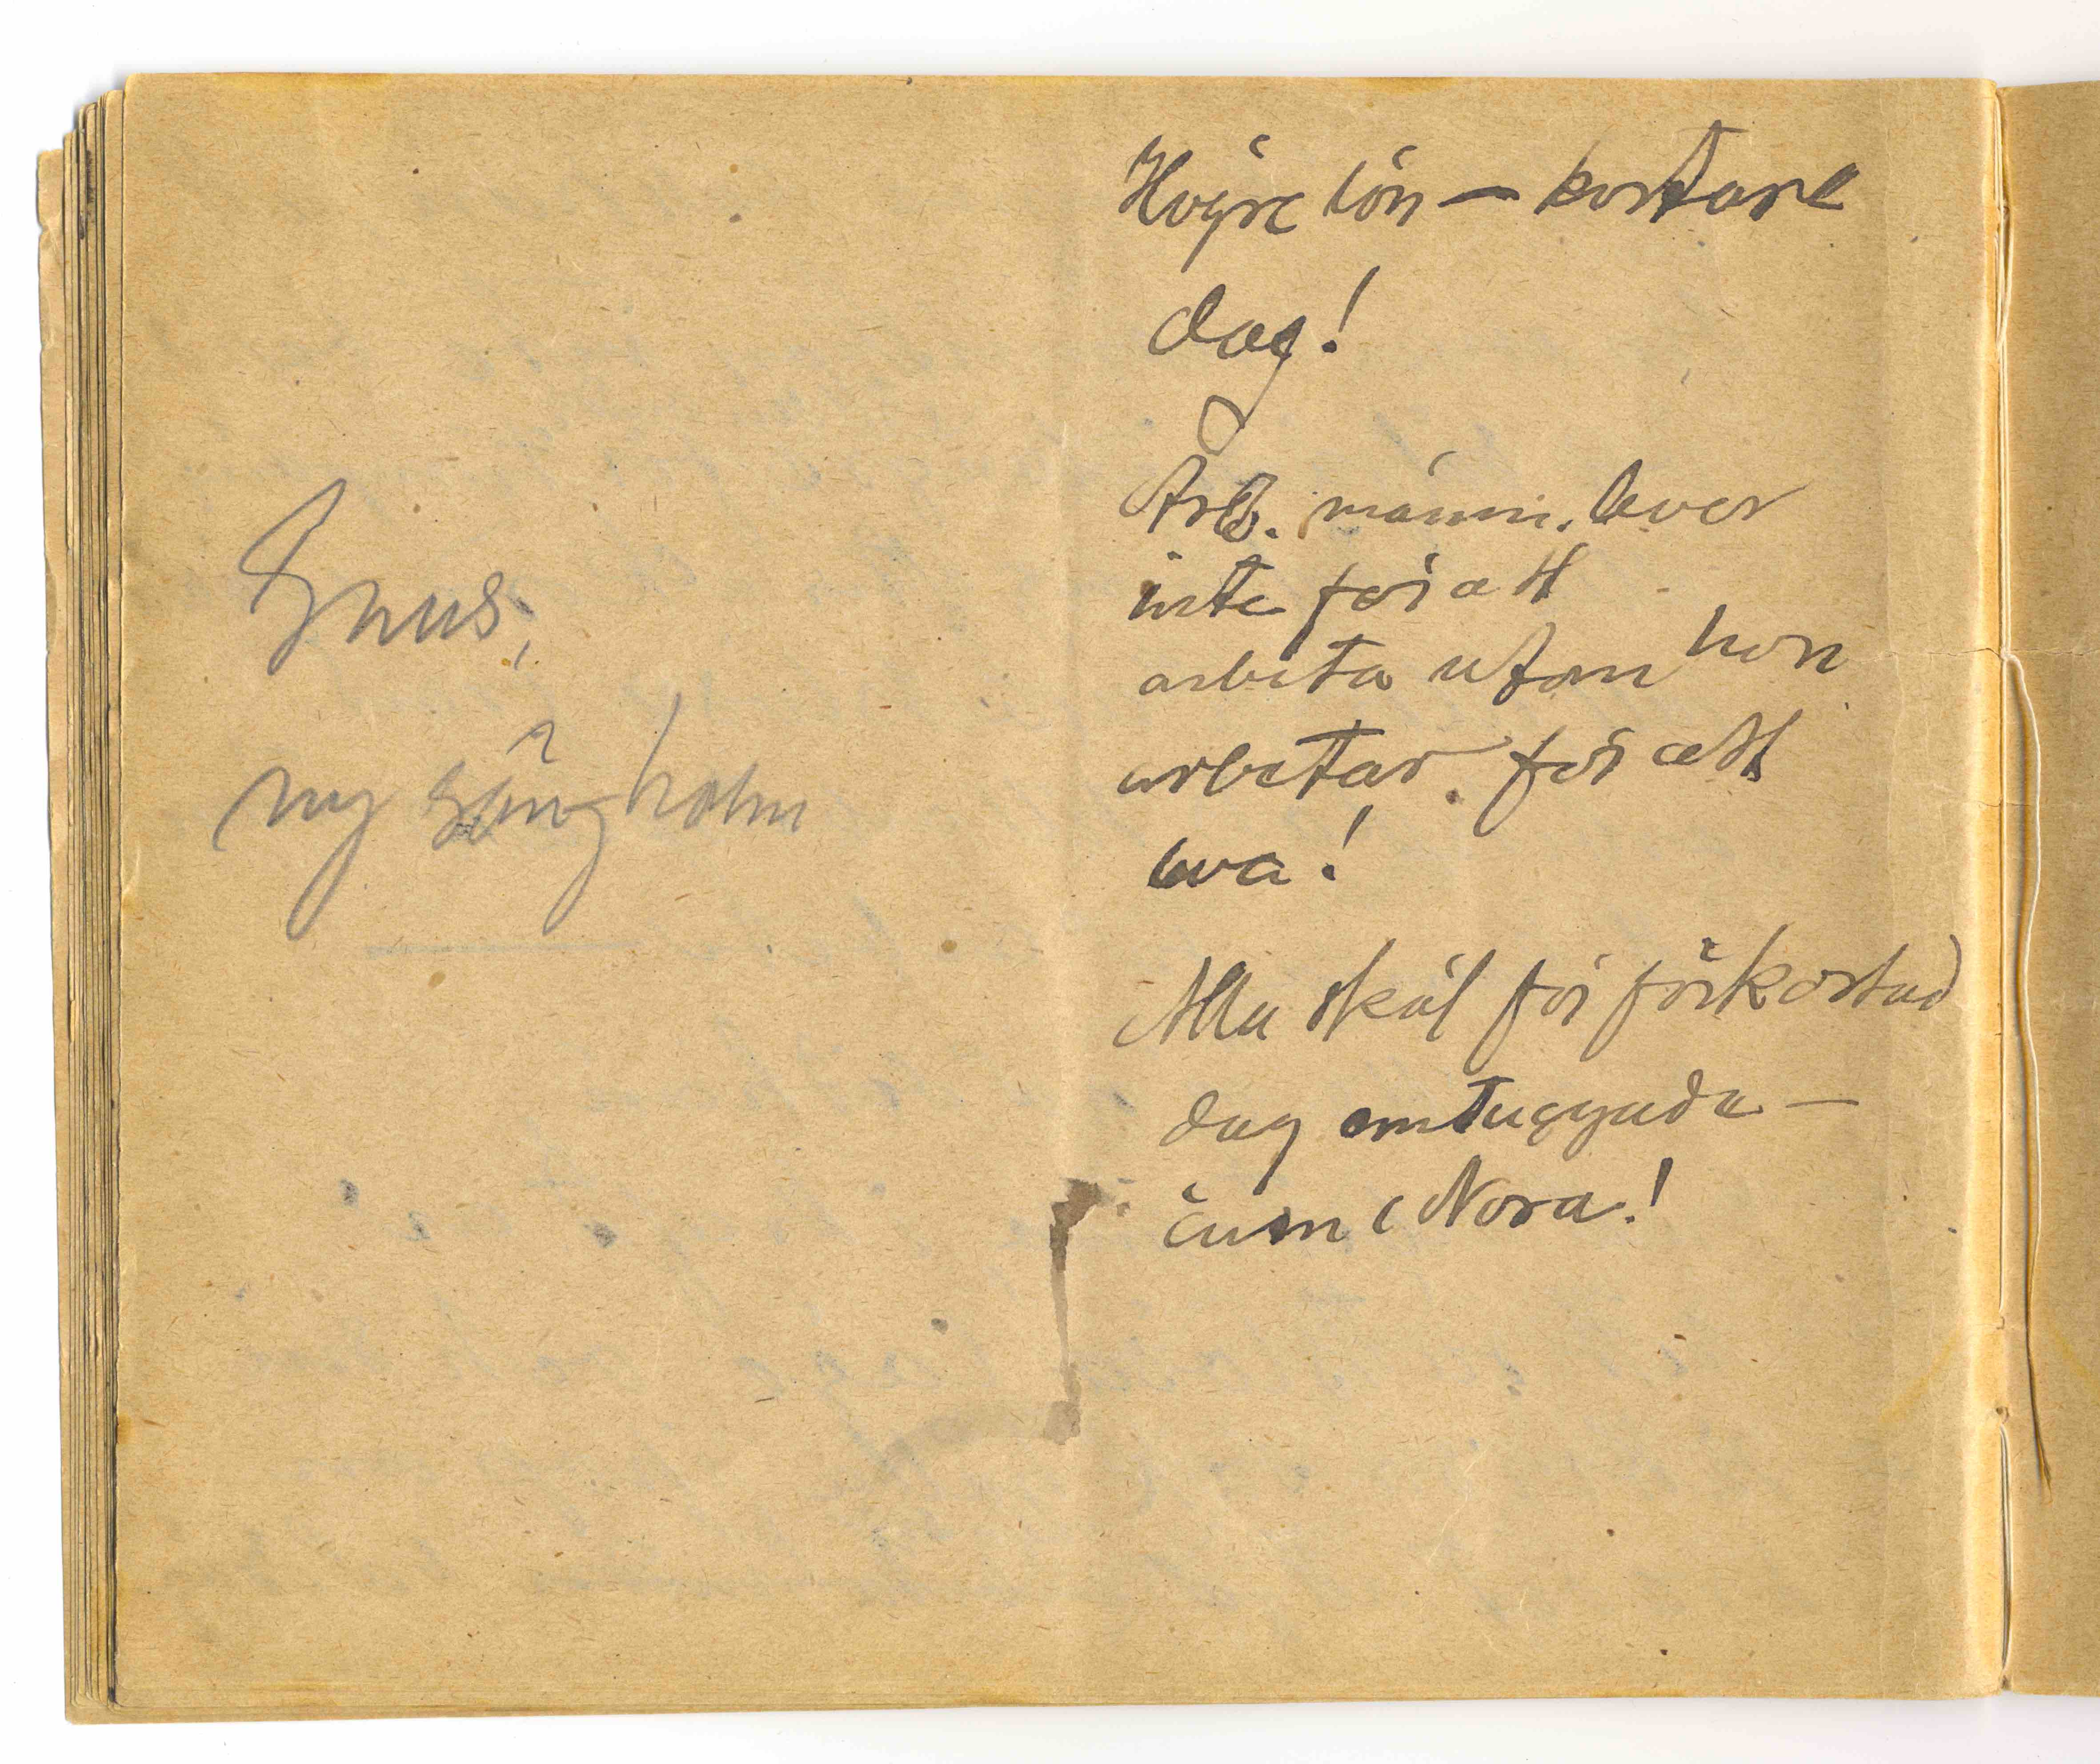 Snus,
ny sång holm
Högre lön — kortare
dag!
Arb. männi. lever
inte för att
arbeta utan hon
arbetar för att
leva!
Alla skäl för förkortad
dag omtuggade —
även i Nora!